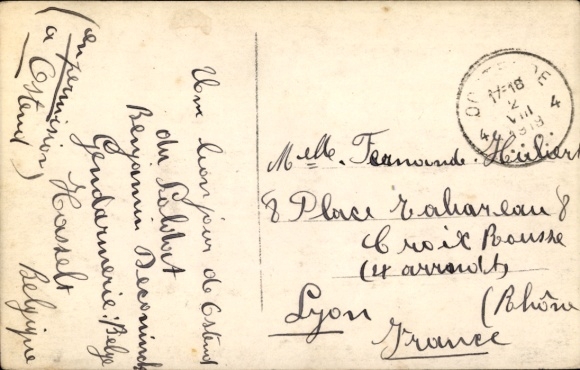 Un bonjour de Ostend
du Soldat
Benjamin Deconinck
Gendarmerie Belge
Hasselt Belgique
(en permission
à Ostend)
17-18
2
VIII
1919
4 4
Melle. Fernande. Hubert
8 Place Tabareau 8
Croix Rousse
(4 arrondt)
Lyon (Rhône
France